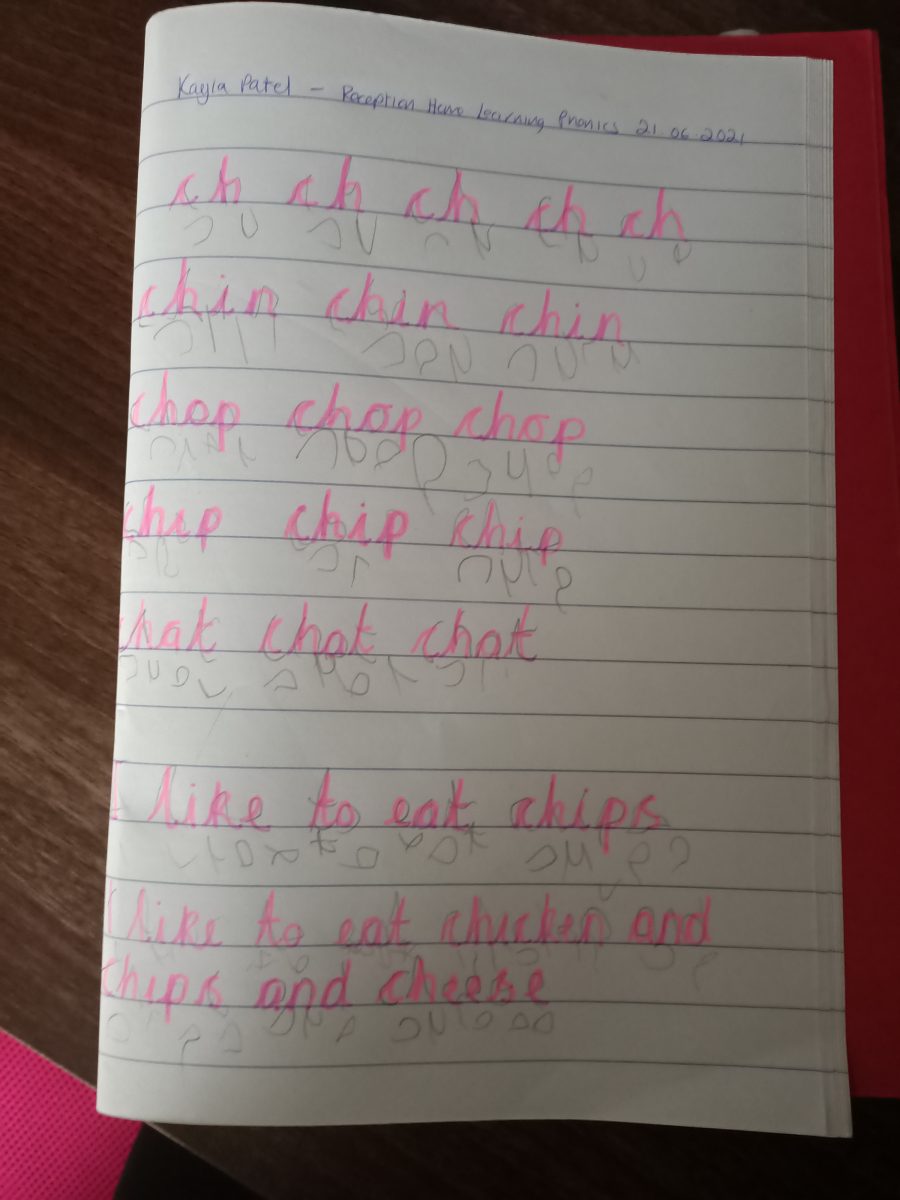 Kayla Patel - Reception Home Learning Phonics 21.06.2021
ch ch ch ch ch
chin chin chin
chop chop chop
chip chip chip
chat chat chat
I like to eat chips
I like to eat chicken and
chips and cheese